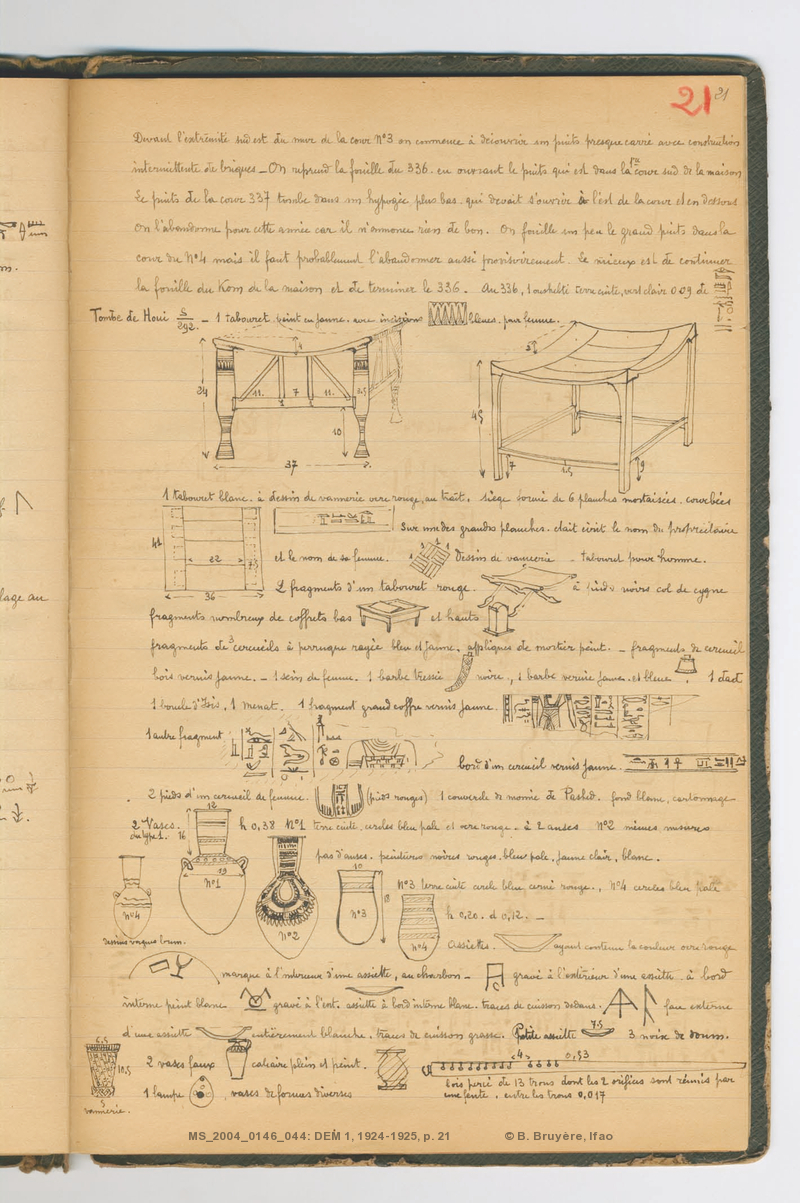 21 21
Devant l'extrémité sud est du mur de la cour N°3 on commence à découvrir un puits presque carré avec construction
intermittente de briques _ On reprend la fouille du 336. en ouvrant le puits qui est dans la 1re cour sud de la maison
Le puits de la cour 337 tombe dans un hypogée plus bas. qui devait s'ouvrir à l'est de la cour et en dessous
On l'abandonne pour cette année car il n'annonce rien de bon. On fouille un peu le grand puits dans la
cour du N°4 mais il faut probablement l'abandonner aussi provisoirement. Le mieux est de continuer
la fouille du Kom de la maison et de terminer le 336. Au 336, 1 oushebti terre cuite, vert clair 0.09 de
Tombe de Houi S/292. _ 1 tabouret peint en jaune. avec incisions bleues. pour femme.
4 5
34 11. 7 11. 45
10
37 7 9
1 tabouret blanc. à dessin de vannerie ocre rouge, au trait. siège formé de 6 planches mortaisées. courbées
sur une des grandes planches. était écrit le nom du propriétaire
41 22
et le nom de sa femme. Dessin de vannerie _ tabouret pour homme.
36
2 fragments d'un tabouret rouge. à pieds noirs col de cygne
fragments nombreux de coffrets bas et hauts
fragments de 3 cercueils à perruque rayée bleu et jaune. appliques de mortier peint. _ fragments de cercueil
bois vernis jaune. _ 1 sein de femme. 1 barbe tressée noire., 1 barbe vernie jaune et bleue 1 dad
1 boucle d'Isis, 1 menat. 1 fragment grand coffre vernis jaune.
1 autre fragment
bord d'un cercueil vernis jaune.
2 pieds d'un cercueil de femme. (pieds rouges) 1 couvercle de momie de Pashed. fond blanc, cartonnage
12
2 Vases. du type 1. 16 h 0,38 N°1 terre cuite. cercles bleu pale et ocre rouge. à 2 anses N°2 mêmes mesures
pas d'anses. peintures noires rouges. bleu pale, jaune clair, blanc.
10
N°1 N°3 terre cuite cercle bleu cerné rouge., N°4 cercles bleu pale
18
N°4 N°2 N°3 N°4 h 0,20. d 0,12. _
dessins vagues bruns.
Assiettes. ayant contenu la couleur ocre rouge
marque à l'intérieur d'une assiette, au charbon _ gravé à l'extérieur d'une assiette à bord
interne peint blanc gravé à l'ext. assiette à bord interne blanc. traces de cuisson dedans. face externe
d'une assiette entièrement blanche. traces de cuisson grasse. Petite assiette 7.5 3 noix de doum.
6,5 10,5 5
2 vases faux calcaire plein et peint. 4 0,53
bois percé de 13 trous dont les 2 orifices sont réunis par
1 lampe, vases de formes diverses une fente. entre les trous 0,017
vannerie.
MS_2004_0146_044: DEM 1, 1924-1925, p. 21 © B. Bruyère, Ifao